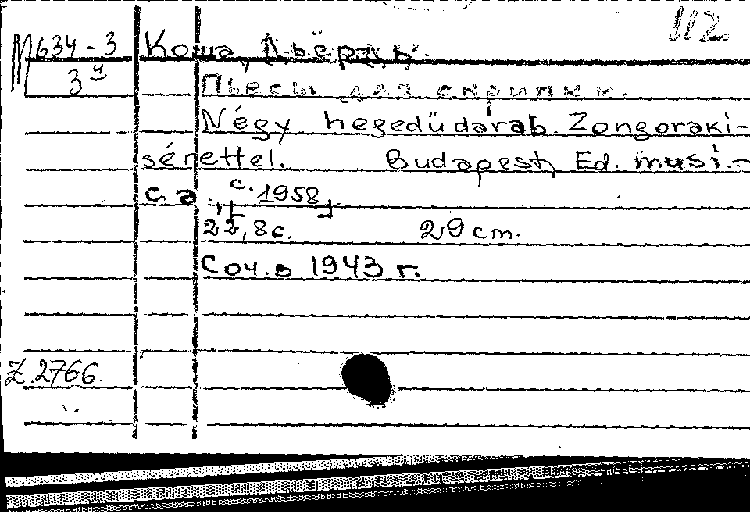 112
М634-3 Коша, Дьёрдь.
3 Пьесы для скрипки.
Négy hegedüdarab. Zongoraki-
sérettel. Budapest, Ed. musi-
ca c. 1958
22, 8 с. 29 cm.
Соч. в 1943 г.
Z. 2766